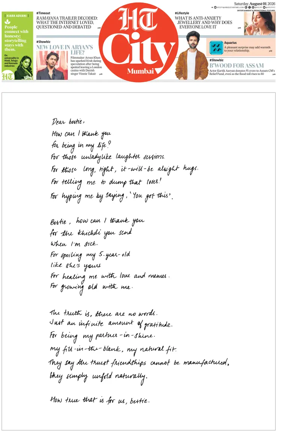 Saturday, August 01 2026
#Teaser
RAMAYANA TRAILER DECODED: WHAT THE INTERNET LOVED, QUESTIONED AND DEBATED
#Showbiz
NEW LOVE IN ARYAN'S LIFE?
HT
City
Mumbai
#Lifestyle
WHAT IS ANTI-ANXIETY JEWELLERY AND WHY DOES EVERYONE LOVE IT
#Showbiz
IT'S WOOD FOR ASSAM
Dear bestie.
How can I thank you
for being in my life?
For those unladylike laughter sessions.
For those long, tight, it-will-be alright hugs.
For telling me to dump that loser!
For hyping me by saying, 'You got this'.
Bestie, how can I thank you
for the khichdi you send
when I'm sick.
For spoiling my 5-year-old
like she's yours
For healing me with love and memes.
For growing old with me.
The truth is, there are no words.
Just an infinite amount of gratitude.
For being my partner-in-shine.
my fill-in-the-blank, my natural fit.
They say the truest friendships cannot be manufactured,
they simply unfold naturally.
How true that is for us, bestie.